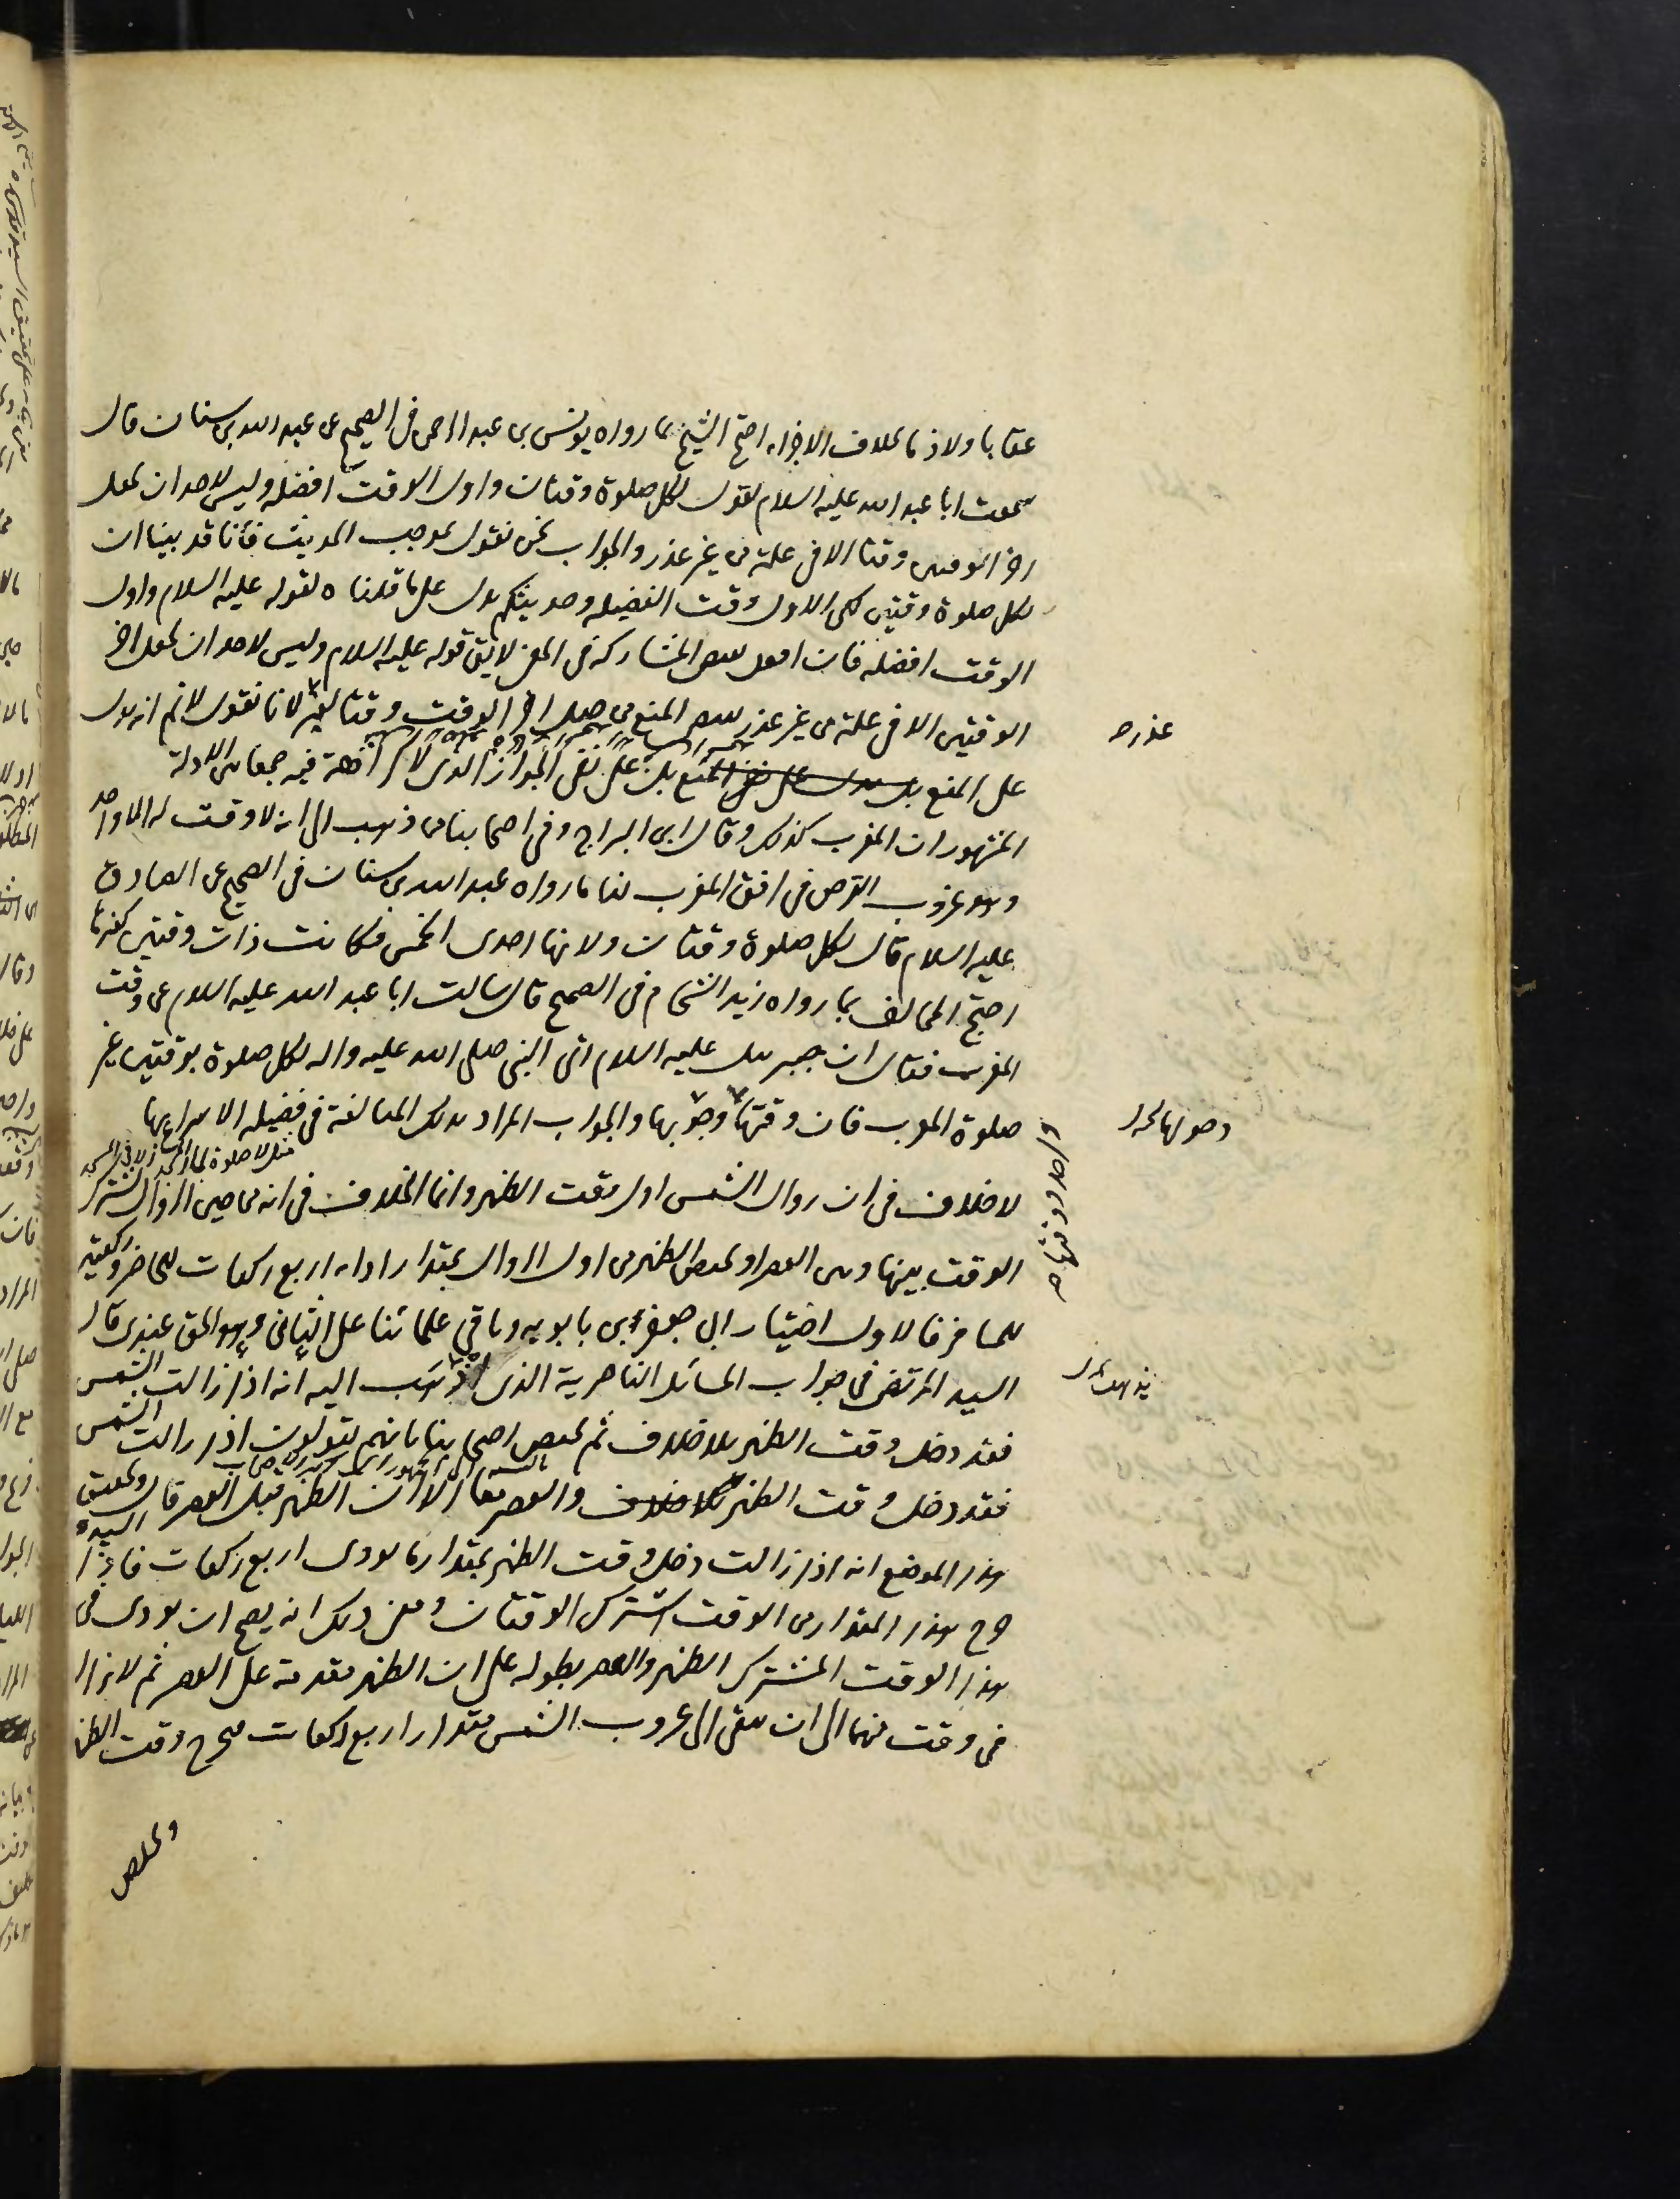 عقابا ولا ذما بخلاف الاجزاء احتج الشيخ بما رواه يونس بن عبد الرحمن في الصحيح عن عبد الله بن سنان قال
سمعت ابا عبد الله عليه السلام يقول لكل صلوة وقتان واول الوقت افضله وليس لاحد ان يجعل
اخر الوقتين وقتا الا في علة من غير عذر والجواب نحن نقول بموجب الحديث فانا قد بينا ان
لكل صلوة وقتين لكن الاول وقت الفضيلة وحديثكم يدل على ما قلناه لقوله عليه السلام واول
الوقت افضله فان افعل يقتضي المشاركة في المعنى لا يقال قوله عليه السلام وليس لاحد ان يجعل اخر
الوقتين الا في علة من غير عذر يقتضي المنع من جعل اخر الوقت وقتا لغير لانا نقول لا نم انه يدل
عذر صح
على المنع بل يدل على نفي المنع بل على نفي الجواز الذي لا كراهة فيه جمعا بين الادلة
المشهور ان المغرب كذلك وقال ابن البراج وفي اصحابنا من ذهب الى انه لا وقت له الا واحد
وهو غروب القرص في افق المغرب لنا ما رواه عبد الله بن سنان في الصحيح عن الصادق
عليه السلام قال لكل صلوة وقتان ولانها احدى الخمس فكانت ذات وقتين كغيرها
احتج المخالف بما رواه زيد الشحام في الصحيح قال سالت ابا عبد الله عليه السلام عن وقت
المغرب فقال ان جبرئيل عليه السلام اتى النبي صلى الله عليه واله لكل صلوة بوقتين غير
صلوة المغرب فان وقتها وجوبها والجواب المراد بذلك المبالغة في فضيلة الاسراع بها
واحد ووقتها صح
مثل لا صلوة لجار المسجد الا في المسجد
لا خلاف في ان زوال الشمس اول وقت الظهر وانما الخلاف في انه من حين الزوال يشترك
الوقت بينها وبين العصر او يختص الظهر من اول الزوال بمقدار اداء اربع ركعات للحاضر وركعتين
للمسافر فالاول اختيار ابي جعفر بن بابويه وباقي علمائنا على الثاني وهو الحق عندي قال
السيد المرتضى في جواب المسائل الناصرية الذي نذهب اليه انه اذا زالت الشمس
فقد دخل وقت الظهر بلا خلاف ثم يختص اصحابنا بانهم يقولون اذا زالت الشمس
فقد دخل وقت الظهر بلا خلاف والعصر معا الا ان الظهر قبل العصر قال السيد وتحقيق
هذا الموضع انه اذا زالت دخل وقت الظهر بمقدار ما يودى اربع ركعات فاذا
خرج هذا المقدار من الوقت اشترك الوقتان ومعنى ذلك انه يصح ان يودى في
هذا الوقت المشترك الظهر والعصر بطوله على ان الظهر مقدمة على العصر ثم لا يزال
في وقت منهما الى ان يبقى الى غروب الشمس مقدار اربع ركعات فيخرج وقت الظهر
ويخلص